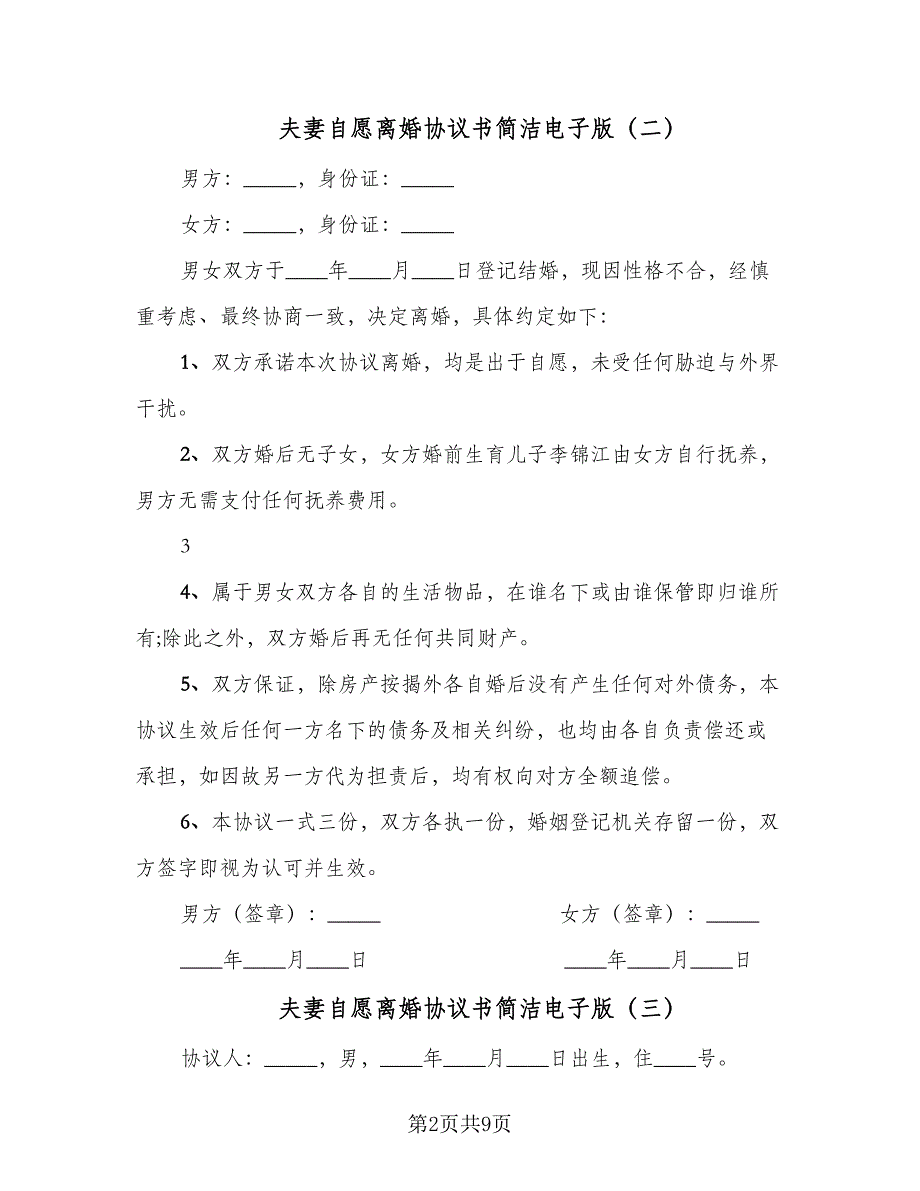 夫妻自愿离婚协议书简洁电子版（二）
男方：_____，身份证：_____
女方：_____，身份证：_____
男女双方于____年____月____日登记结婚，现因性格不合，经慎
重考虑、最终协商一致，决定离婚，具体约定如下：
1、双方承诺本次协议离婚，均是出于自愿，未受任何胁迫与外界
干扰。
2、双方婚后无子女，女方婚前生育儿子李锦江由女方自行抚养，
男方无需支付任何抚养费用。
3
4、属于男女双方各自的生活物品，在谁名下或由谁保管即归谁所
有;除此之外，双方婚后再无任何共同财产。
5、双方保证，除房产按揭外各自婚后没有产生任何对外债务，本
协议生效后任何一方名下的债务及相关纠纷，也均由各自负责偿还或
承担，如因故另一方代为担责后，均有权向对方全额追偿。
6、本协议一式三份，双方各执一份，婚姻登记机关存留一份，双
方签字即视为认可并生效。
男方（签章）：_____ 女方（签章）：_____
____年____月____日 ____年____月____日
夫妻自愿离婚协议书简洁电子版（三）
协议人：_____，男，____年____月____日出生，住____号。
第2页共9页